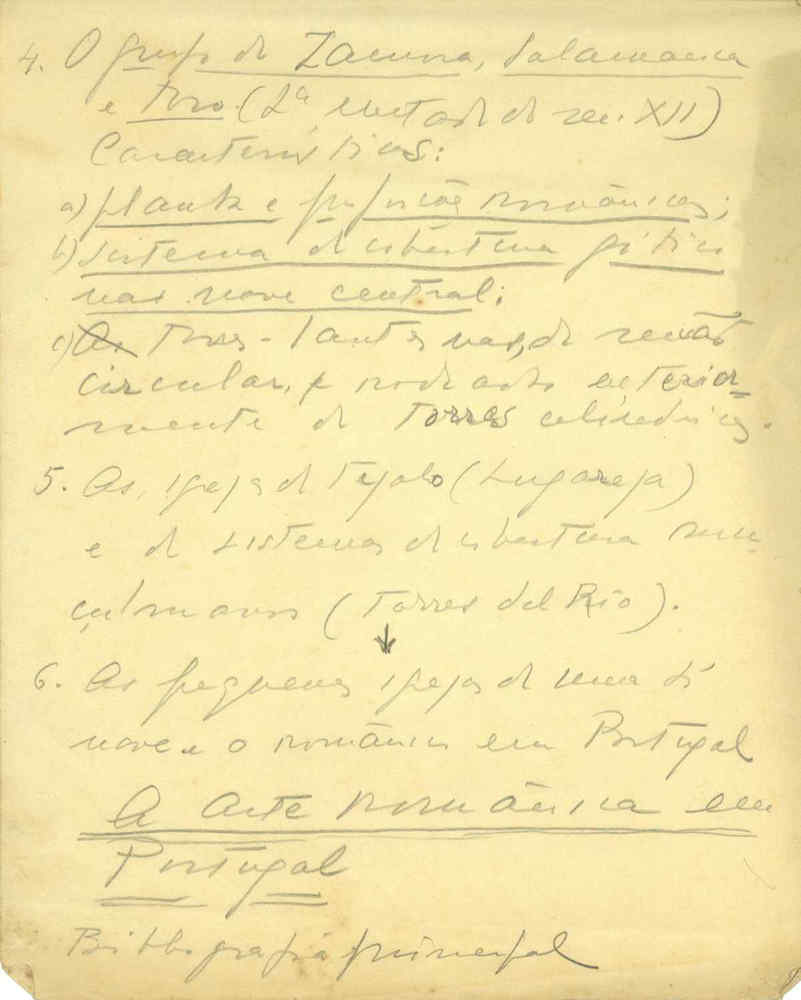 4. O grupo de Zamora, Salamanca
e Toro (2ª metade do sec. XII)
Características:
a) planta e proporções românicas;
b) sistema de cobertura gótico
nas nave central;
c) torres-lanternas, de secção
circular, e rodeadas exterior-
mente de torres cilíndricas.
5. As igrejas de tijolo (Lugareja)
e de sistemas de cobertura mu-
çulmanos (Torres del Rio).
6. As pequenas igrejas de uma só
nave e o românico em Portugal
A arte românica em
Portugal
Bibliografia principal